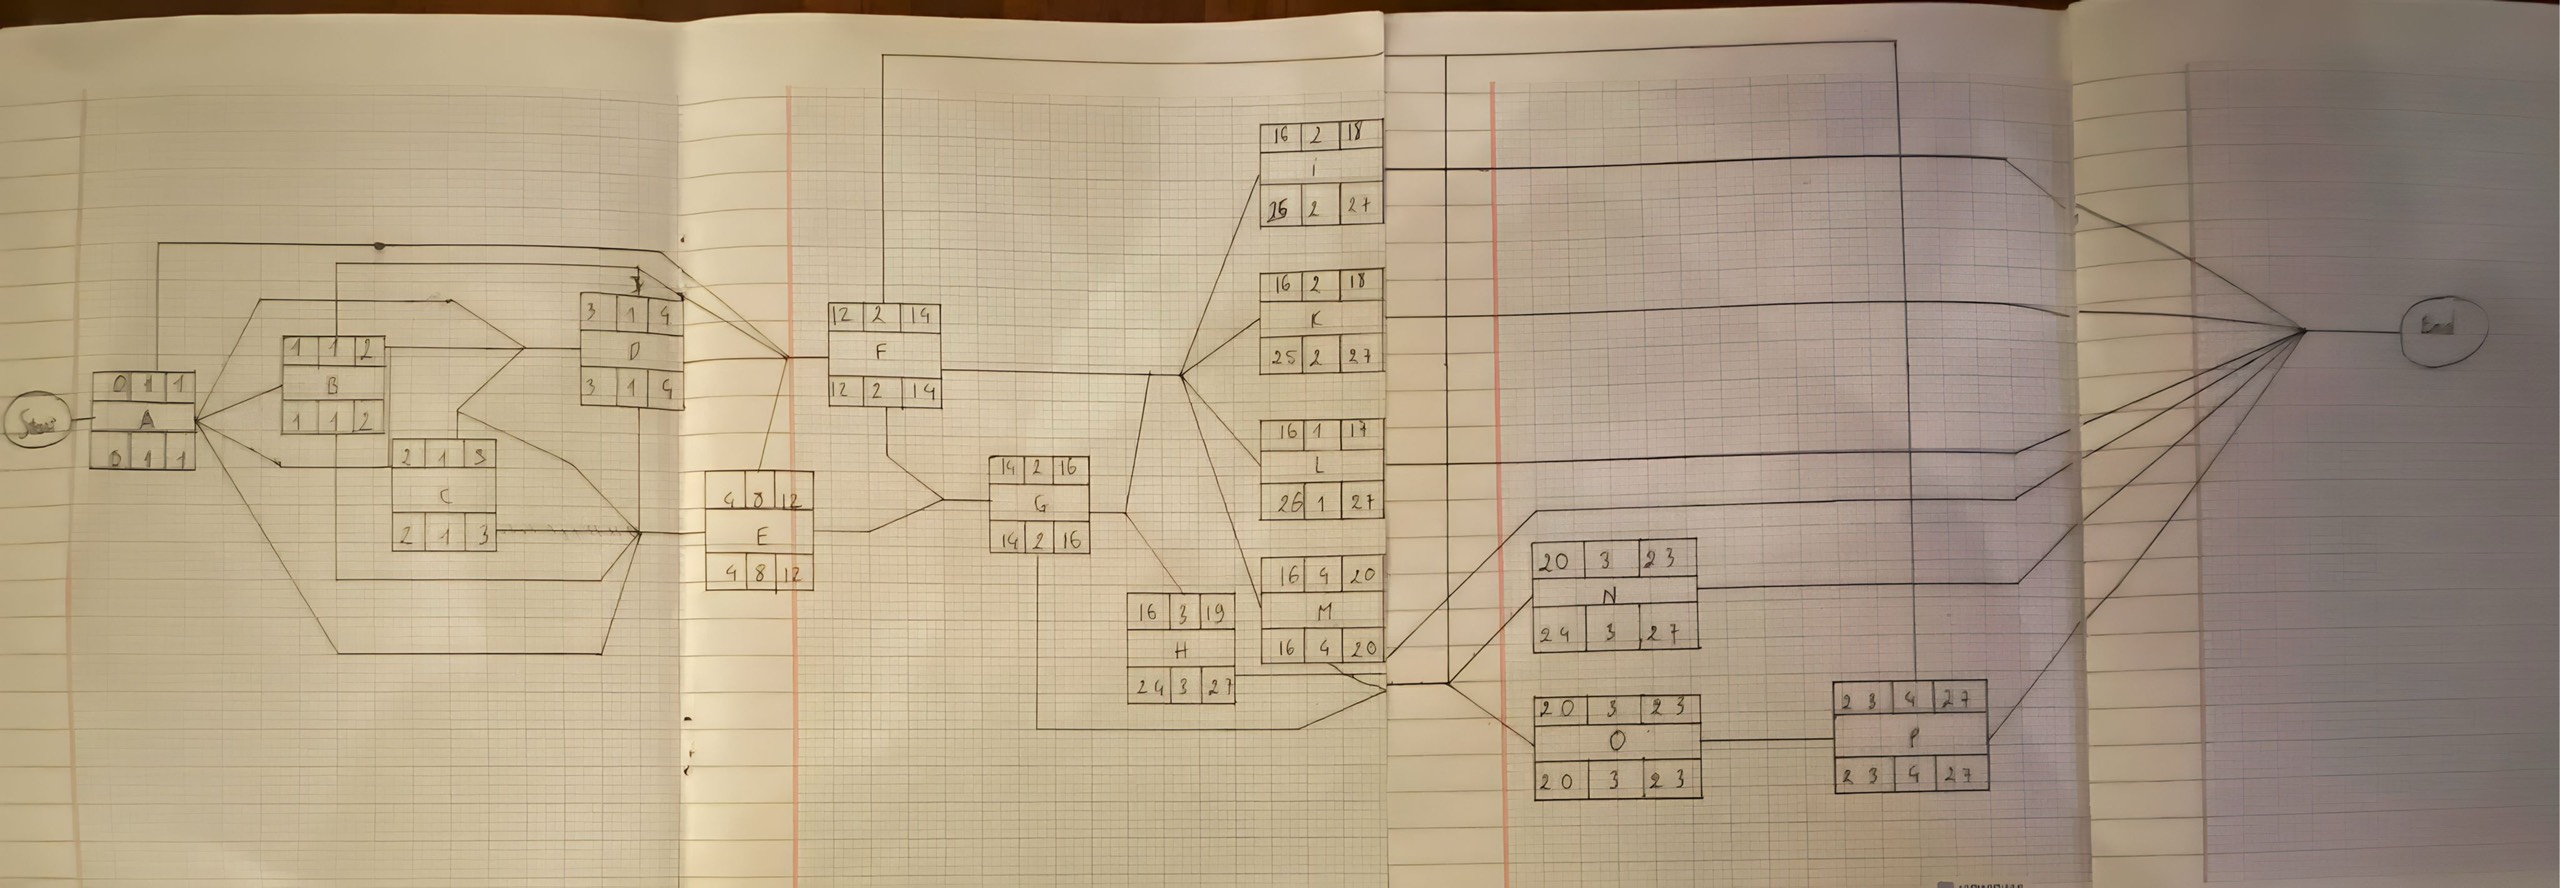 Start
0 1 1
A
0 1 1
1 1 2
B
1 1 2
2 1 3
C
2 1 3
3 1 4
D
3 1 4
4 8 12
E
4 8 12
12 2 14
F
12 2 14
14 2 16
G
14 2 16
16 3 19
H
24 3 27
16 2 18
i
25 2 27
16 2 18
K
25 2 27
16 1 17
L
26 1 27
16 4 20
M
16 4 20
20 3 23
N
24 3 27
20 3 23
O
20 3 23
23 4 27
P
23 4 27
End